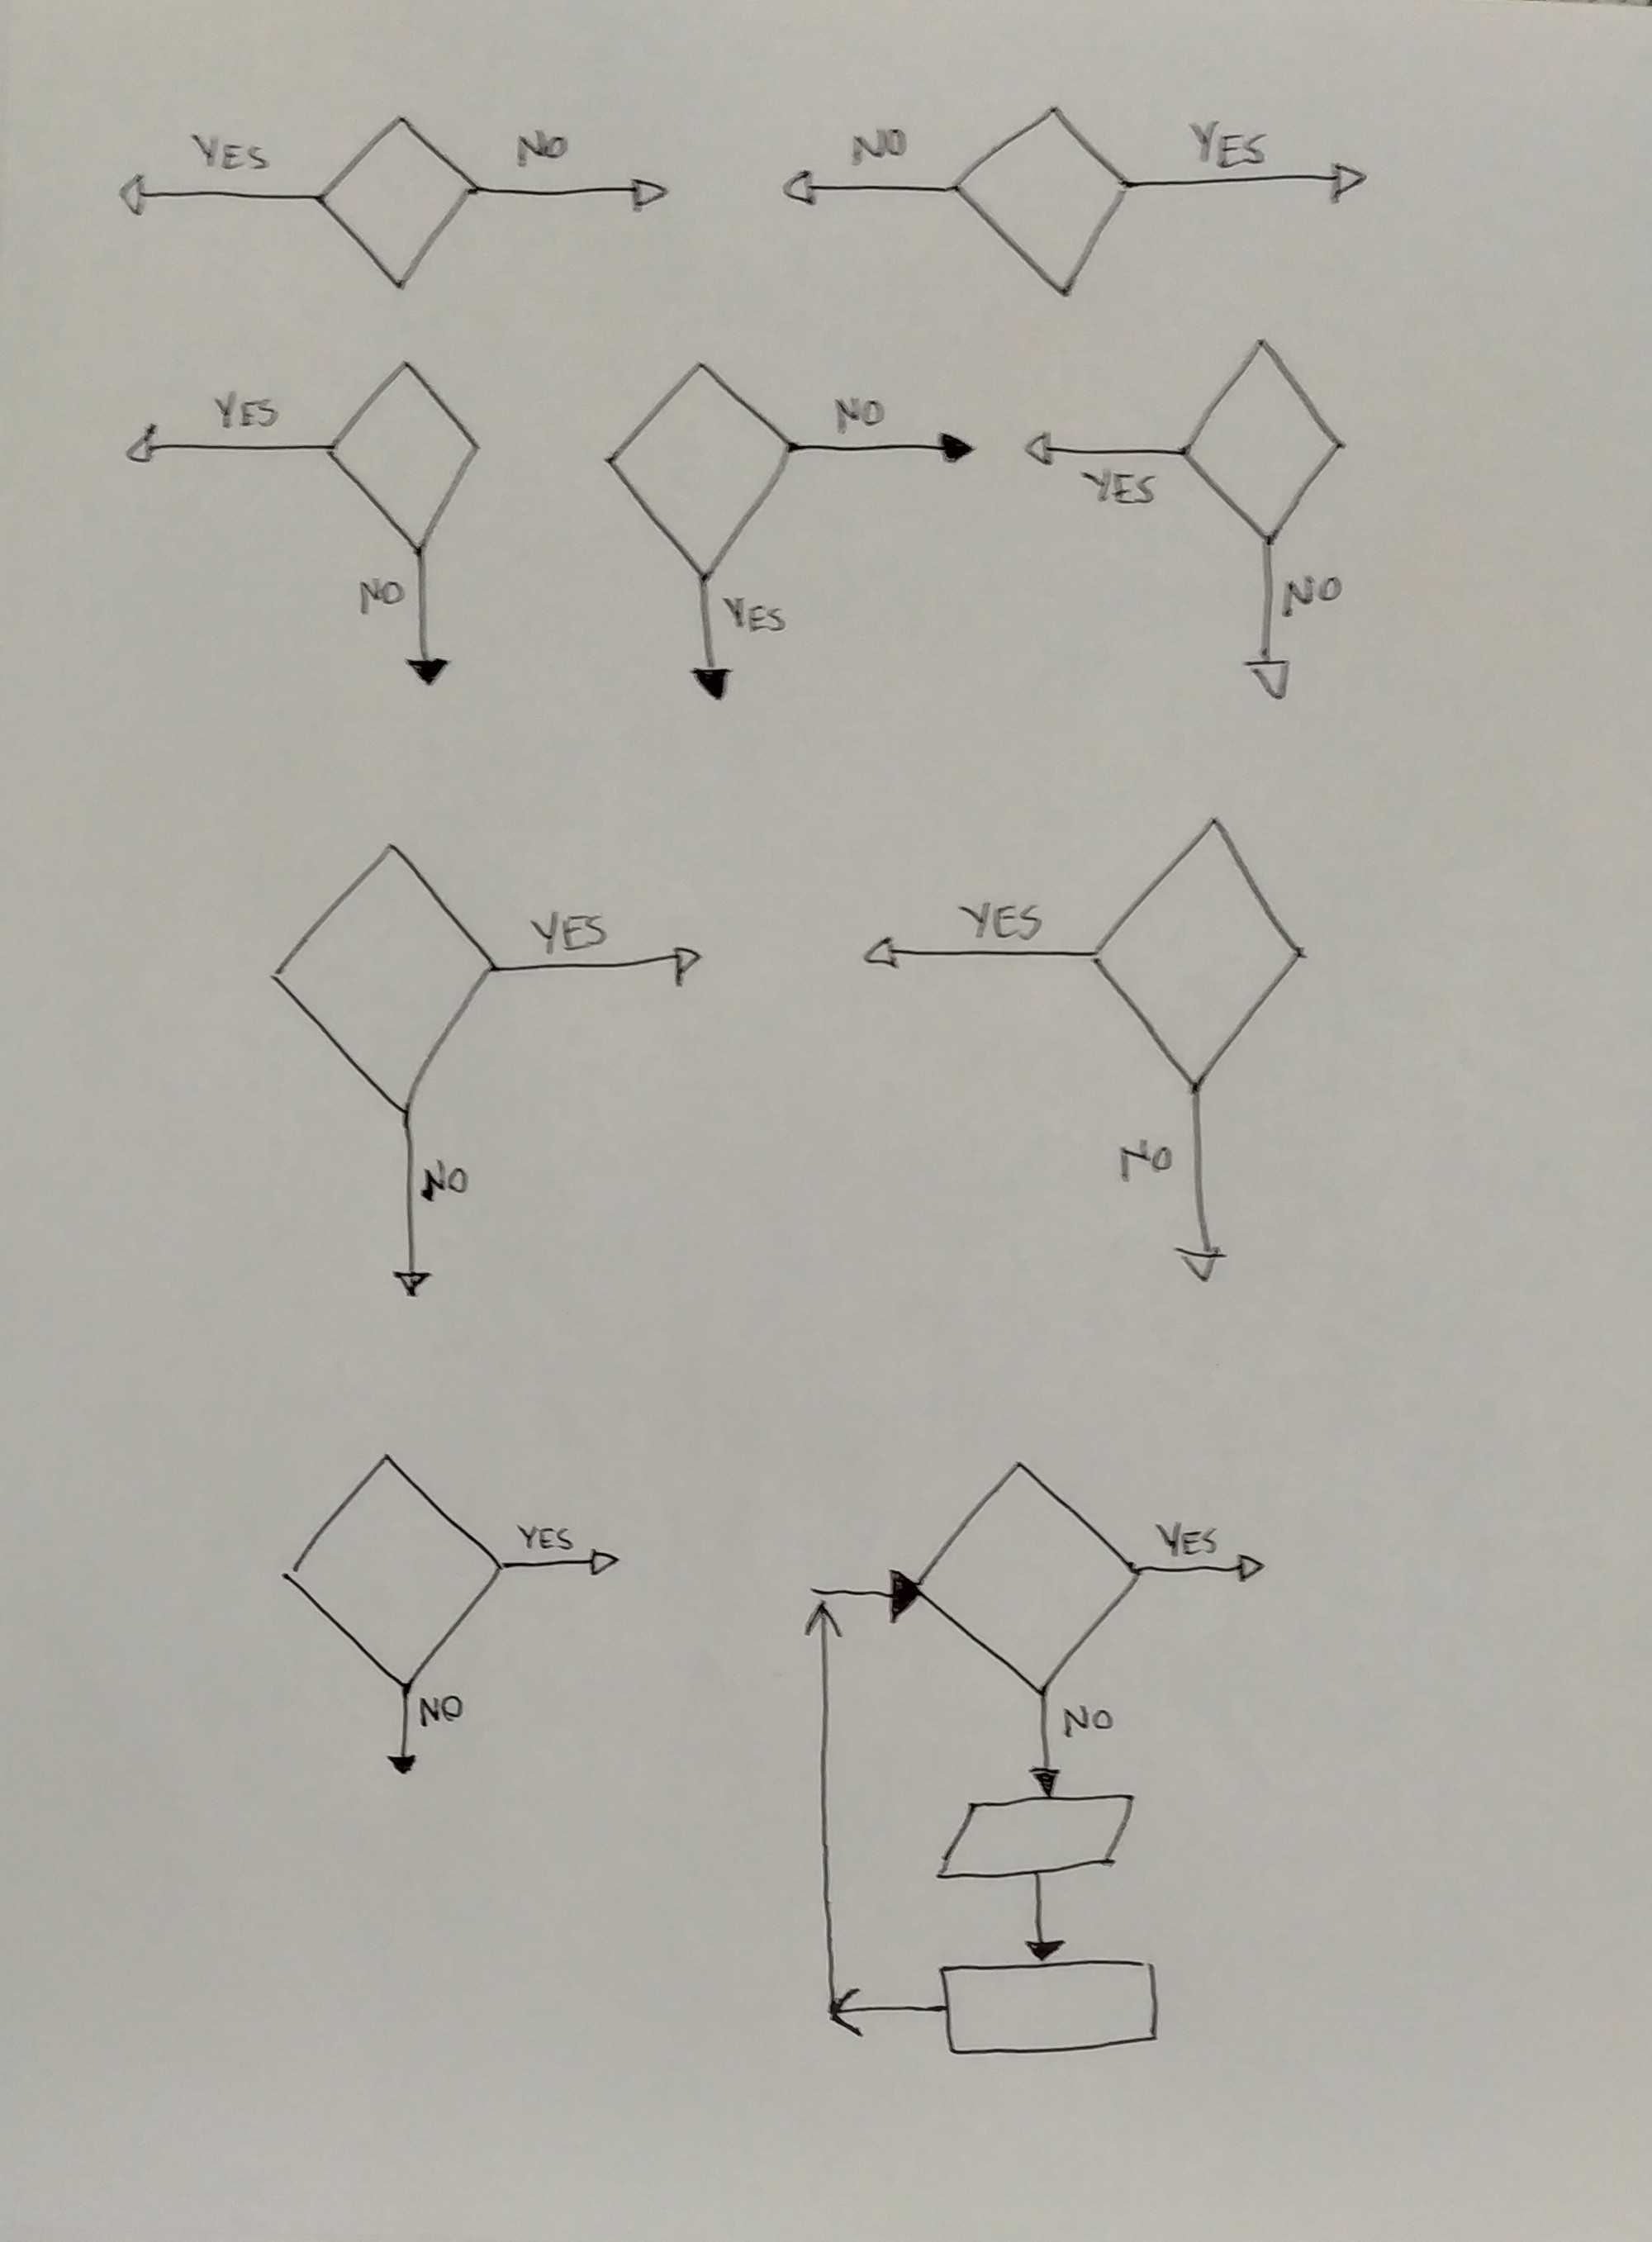 YES NO
NO YES
YES
NO
NO
YES
YES
NO
YES
NO
YES
NO
YES
NO
YES
NO